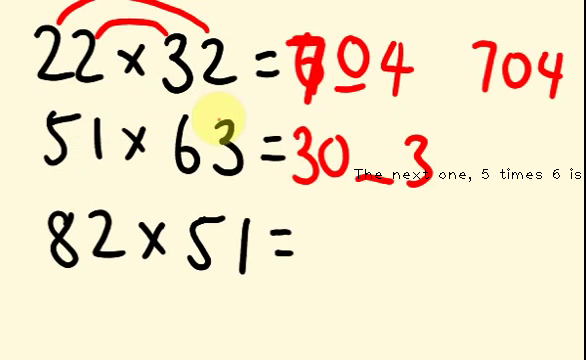 22 × 32 = 704 704
51 × 63 = 30_3
The next one, 5 times 6 is
82 × 51 =